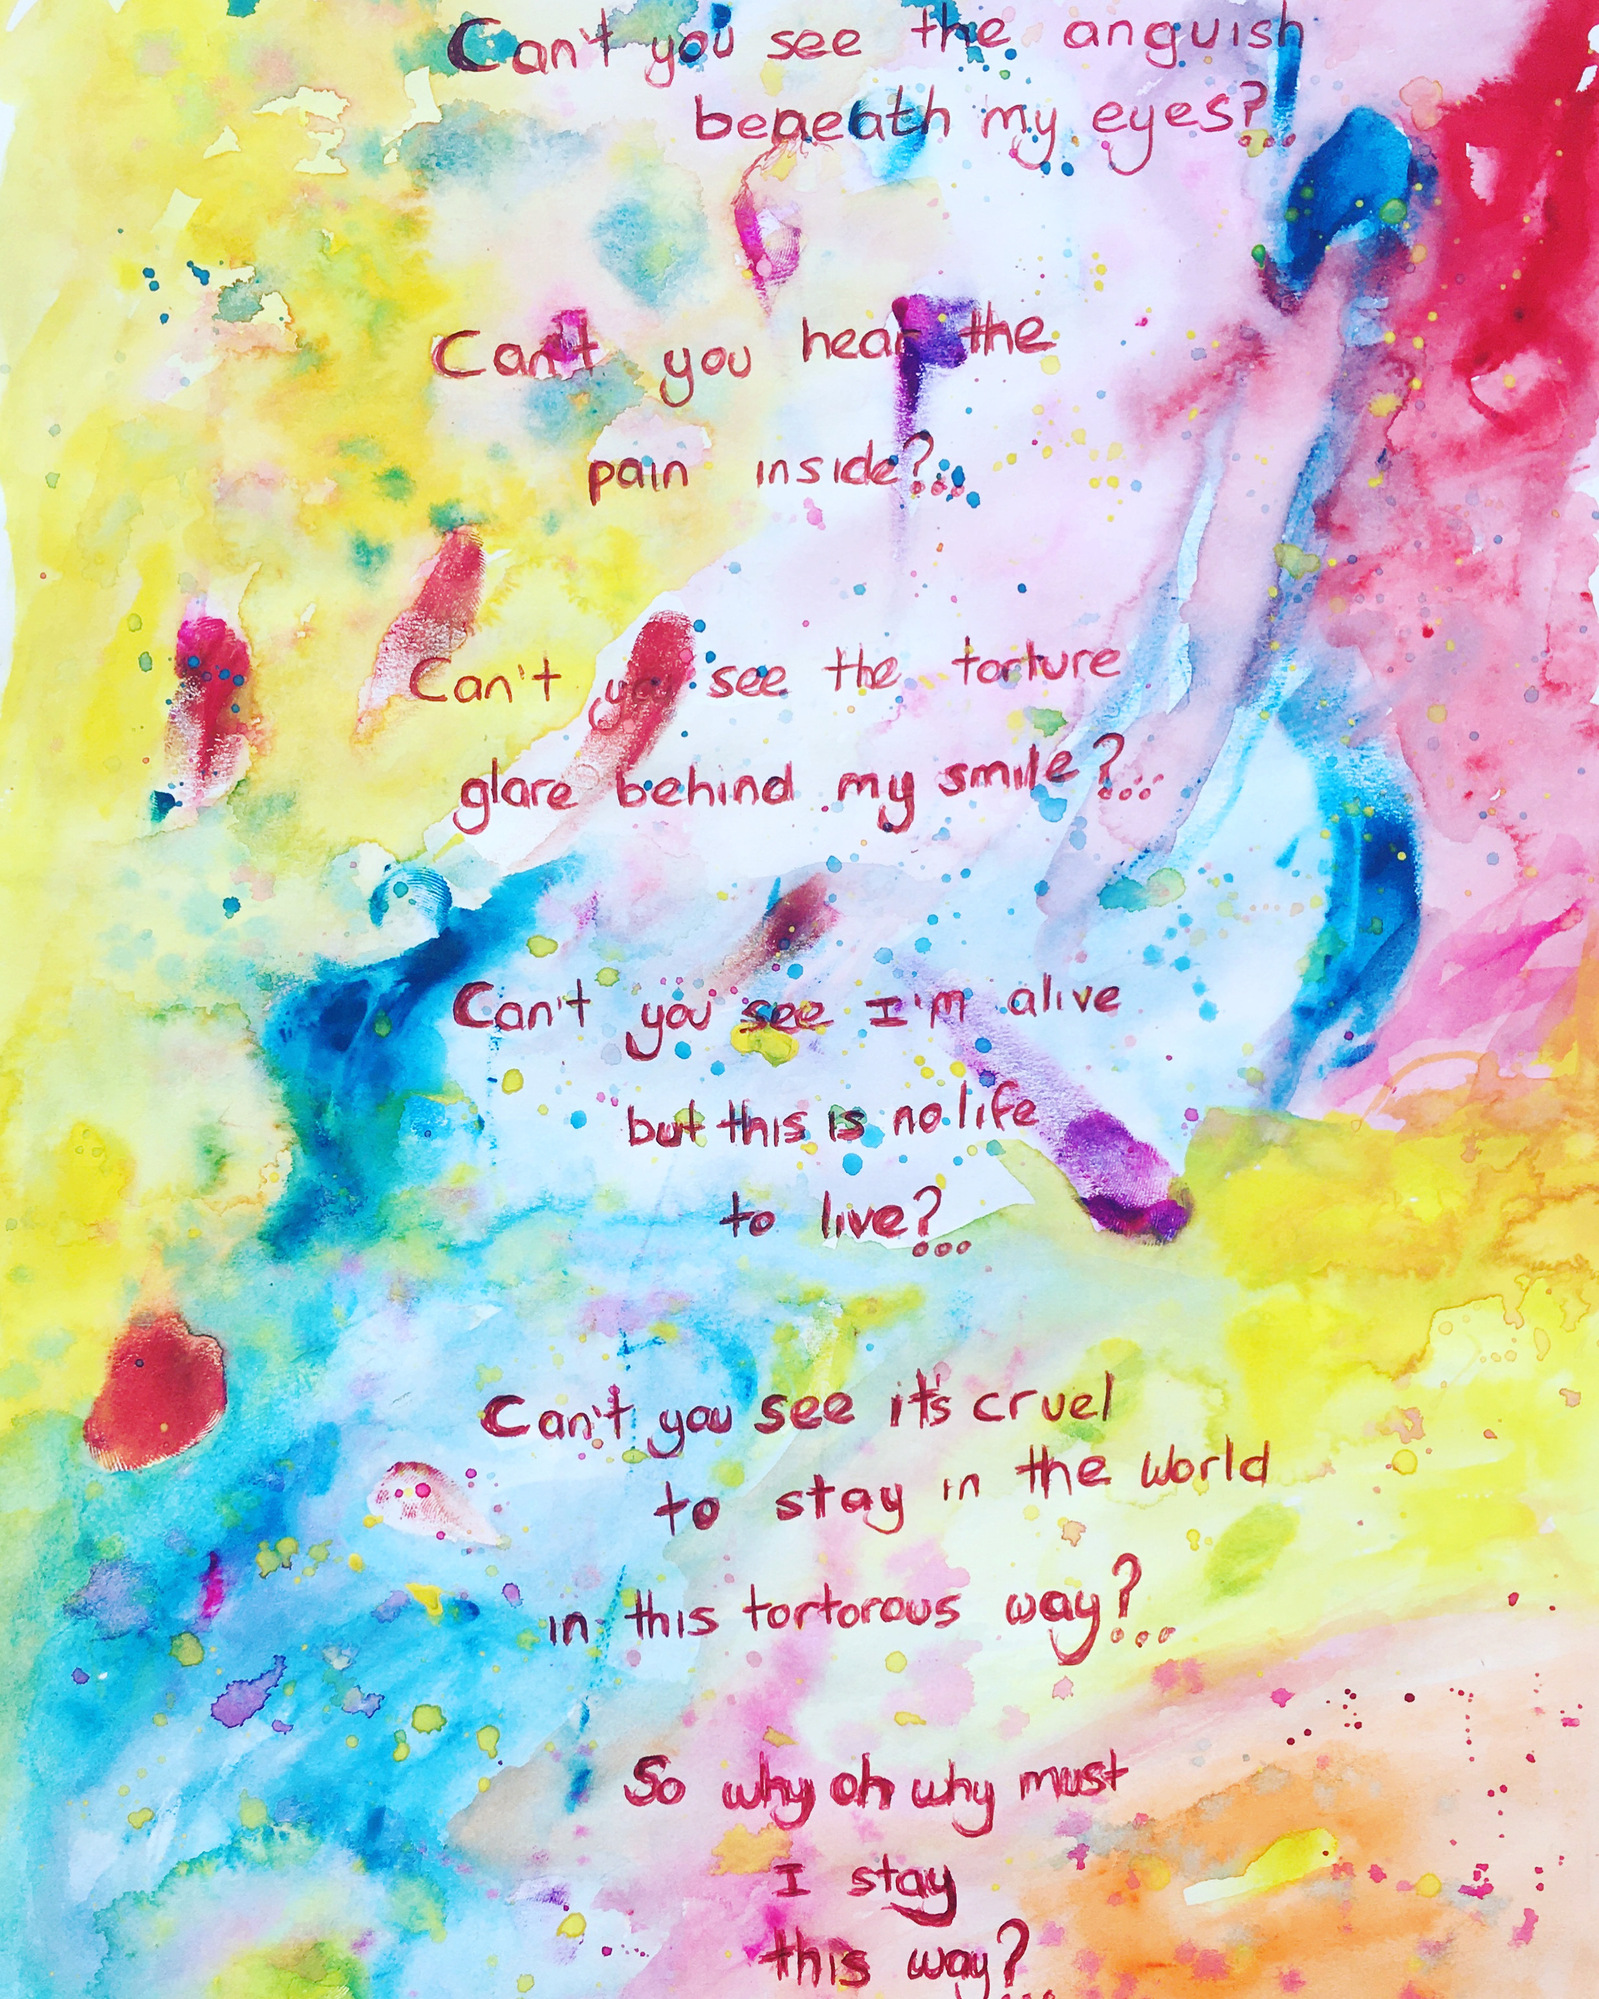 Can't you see the anguish
beneath my eyes?...
Can't you hear the
pain inside?...
Can't you see the torture
glare behind my smile?...
Can't you see I'm alive
but this is no life
to live?...
Can't you see it's cruel
to stay in the world
in this tortorous way?...
So why oh why must
I stay
this way?...